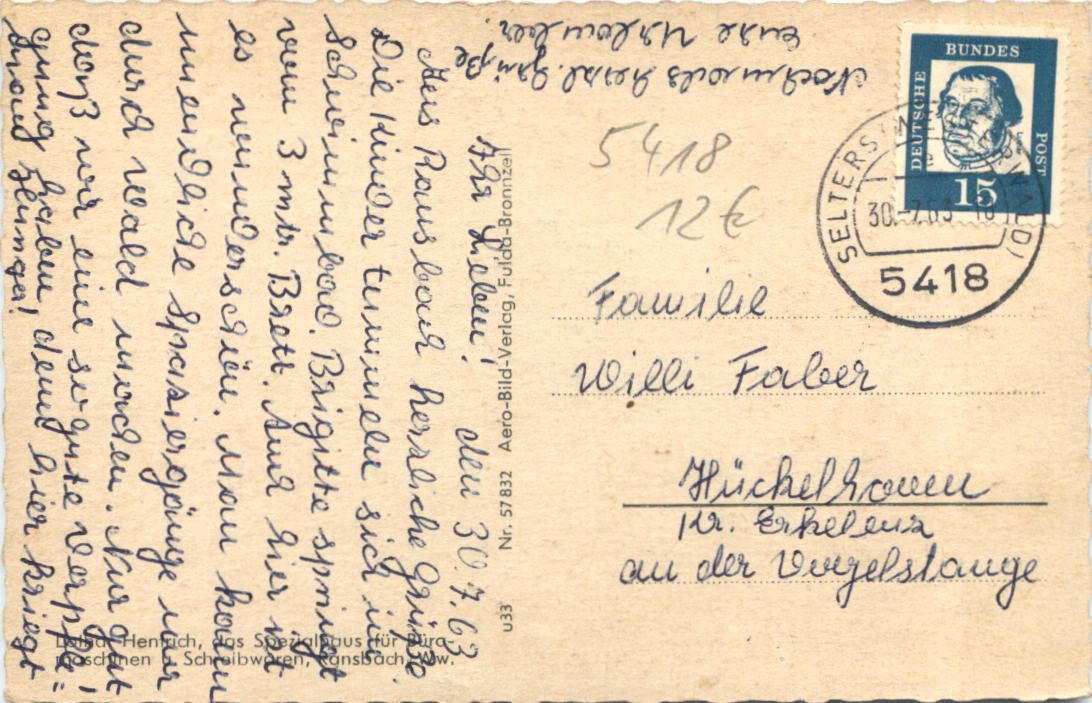 Ihr Lieben! den 30.7.63
Aus Ransbach herzliche Grüße.
Die Kinder tummeln sich im
Schwimmbad. Brigitte springt
vom 3 mtr. Brett. Auch hier ist
es wunderschön. Man kann
unendliche Spaziergänge nur
durch Wald machen. Nur gut
daß wir eine so gute Verpfle=
gung haben, denn hier kriegt
man Hunger!
Nochmals herzl. Grüße
Eure Urlauber.
5418
12 €
DEUTSCHE
BUNDES
POST
15
SELTERS (WESTERWALD)
30.-7.63
5418
Familie
Willi Faber
Hückelhoven
Kr. Erkelenz
an der Vogelstange
u33 Nr. 57832 Aero-Bild-Verlag, Fulda-Bronnzell
Hentrich, das Spezialhaus für Büro-
maschinen u. Schreibwaren, Ransbach/Ww.